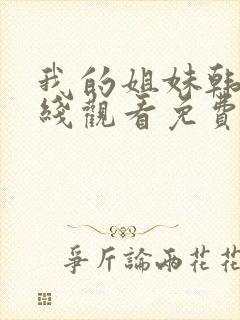 我的姐妹韩
綫觀看免費
爭斤論兩花花